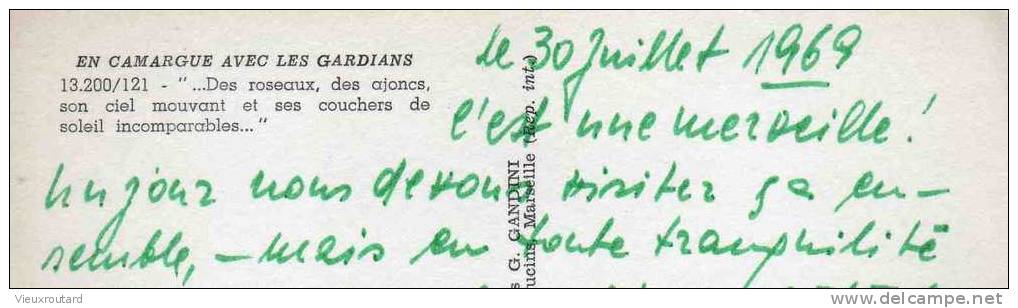 EN CAMARGUE AVEC LES GARDIANS
13.200/121 - "...Des roseaux, des ajoncs,
son ciel mouvant et ses couchers de
soleil incomparables..."
le 30 Juillet 1969
c'est une merveille!
un jour nous devons visiter ça en-
semble, - mais en toute tranquilité
G. GANDINI
Marseille (Rep. int.)
Vieuxroutard
delcampe.net